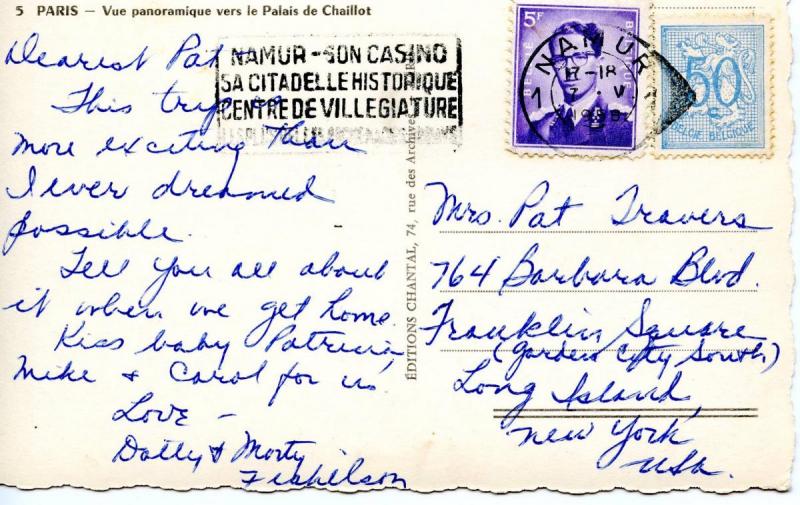 5 PARIS – Vue panoramique vers le Palais de Chaillot
Dearest Pat
This trip is
more exciting than
I ever dreamed
possible.
Tell you all about
it when we get home.
Kiss baby Patricia,
Mike & Carol for us
Love –
Dolly & Morty
Fishelson
NAMUR - SON CASINO
SA CITADELLE HISTORIQUE
CENTRE DE VILLEGIATURE
ÉDITIONS CHANTAL, 74, rue des Archives
5F
NAMUR
17-18
1 1
50
BELGIE-BELGIQUE
Mrs. Pat Travers
764 Barbara Blvd.
Franklin Square
(Garden City South)
Long Island,
New York
USA.